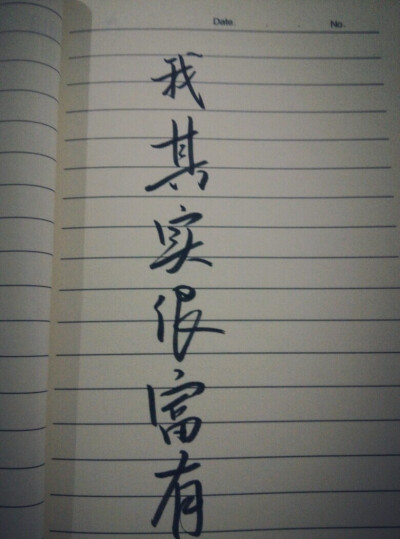 Date. No.
我其实很富有